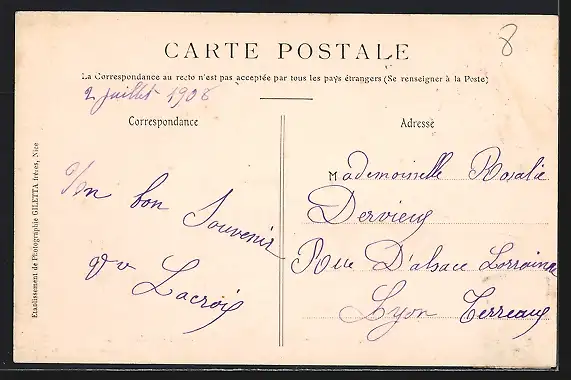 8
CARTE POSTALE
La Correspondance au recto n'est pas acceptée par tous les pays étrangers (Se renseigner à la Poste)
2 juillet 1908
Correspondance
Un bon Souvenir
Lacroix
Adresse
Mademoiselle Rosalie
Dervieux
Rue D'alsace Lorraine
Lyon Terreaux
Etablissement de Photographie GILETTA frères, Nice